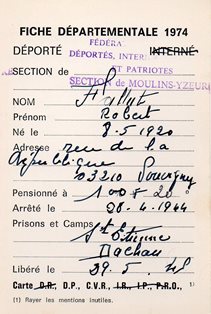 FICHE DÉPARTEMENTALE 1974
DÉPORTÉ INTERNÉ
FÉDÉRA
DÉPORTÉS, INTER
ET PATRIOTES
SECTION de SECTION de MOULINS-YZEUR
NOM
Prénom Robert
Né le 8.5.1920
Adresse rue de la
République
03210 Souvigny
Pensionné à 100%
Arrêté le 28.4.1944
Prisons et Camps
St Etienne
Dachau
Libéré le 29.5.45
Carte D.R., D.P., C.V.R., I.R., I.P., P.R.O., 1)
(1) Rayer les mentions inutiles.